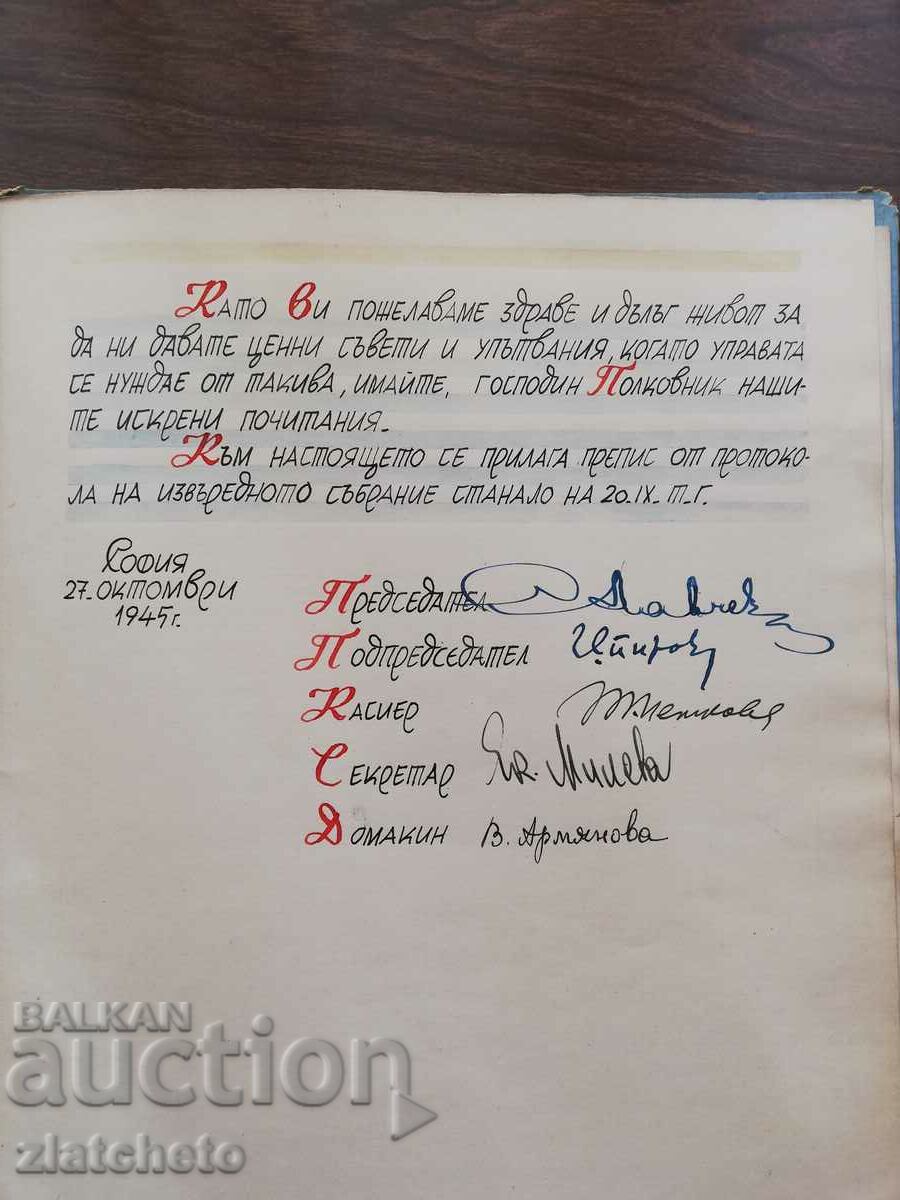 Като Ви пожелаваме здраве и дълъг живот за
да ни давате ценни съвети и упътвания, когато управата
се нуждае от такива, имайте, господин Полковник наши-
те искрени почитания.
Към настоящето се прилага препис от протоко-
ла на извъредното събрание станало на 20.IX.т.г.
София
27.октомври
1945г.
Председател
Подпредседател
Касиер
Секретар Ек. Милева
Домакин В. Армянова
BALKAN
auction
zlatcheto